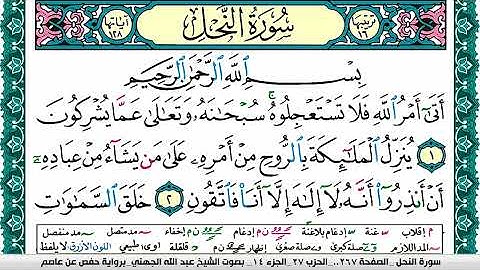 ترتيبها ١٦ سُورَةُ النَّحْلِ آياتها ١٢٨
بِسْمِ ٱللَّهِ ٱلرَّحْمَٰنِ ٱلرَّحِيمِ
أَتَىٰٓ أَمْرُ ٱللَّهِ فَلَا تَسْتَعْجِلُوهُ ۚ سُبْحَٰنَهُۥ وَتَعَٰلَىٰ عَمَّا يُشْرِكُونَ
١ يُنَزِّلُ ٱلْمَلَٰٓئِكَةَ بِٱلرُّوحِ مِنْ أَمْرِهِۦ عَلَىٰ مَن يَشَآءُ مِنْ عِبَادِهِۦٓ
أَنْ أَنذِرُوٓا۟ أَنَّهُۥ لَآ إِلَٰهَ إِلَّآ أَنَا۠ فَٱتَّقُونِ ٢ خَلَقَ ٱلسَّمَٰوَٰتِ
م إقلاب غنة إدغام بلاغنة ن م إدغام ن م إخفاء مد متصل مد منفصل
المد اللازم صلة كبرى صلة صغرى إظهار ن م قلقلة اوى طبيعي اللون الأزرق لا يلفظ
سورة النحل .. الصفحة ٢٦٧.. الحزب ٢٧ .الجزء ١٤ .. بصوت الشيخ عبد الله الجهني .. برواية حفص عن عاصم